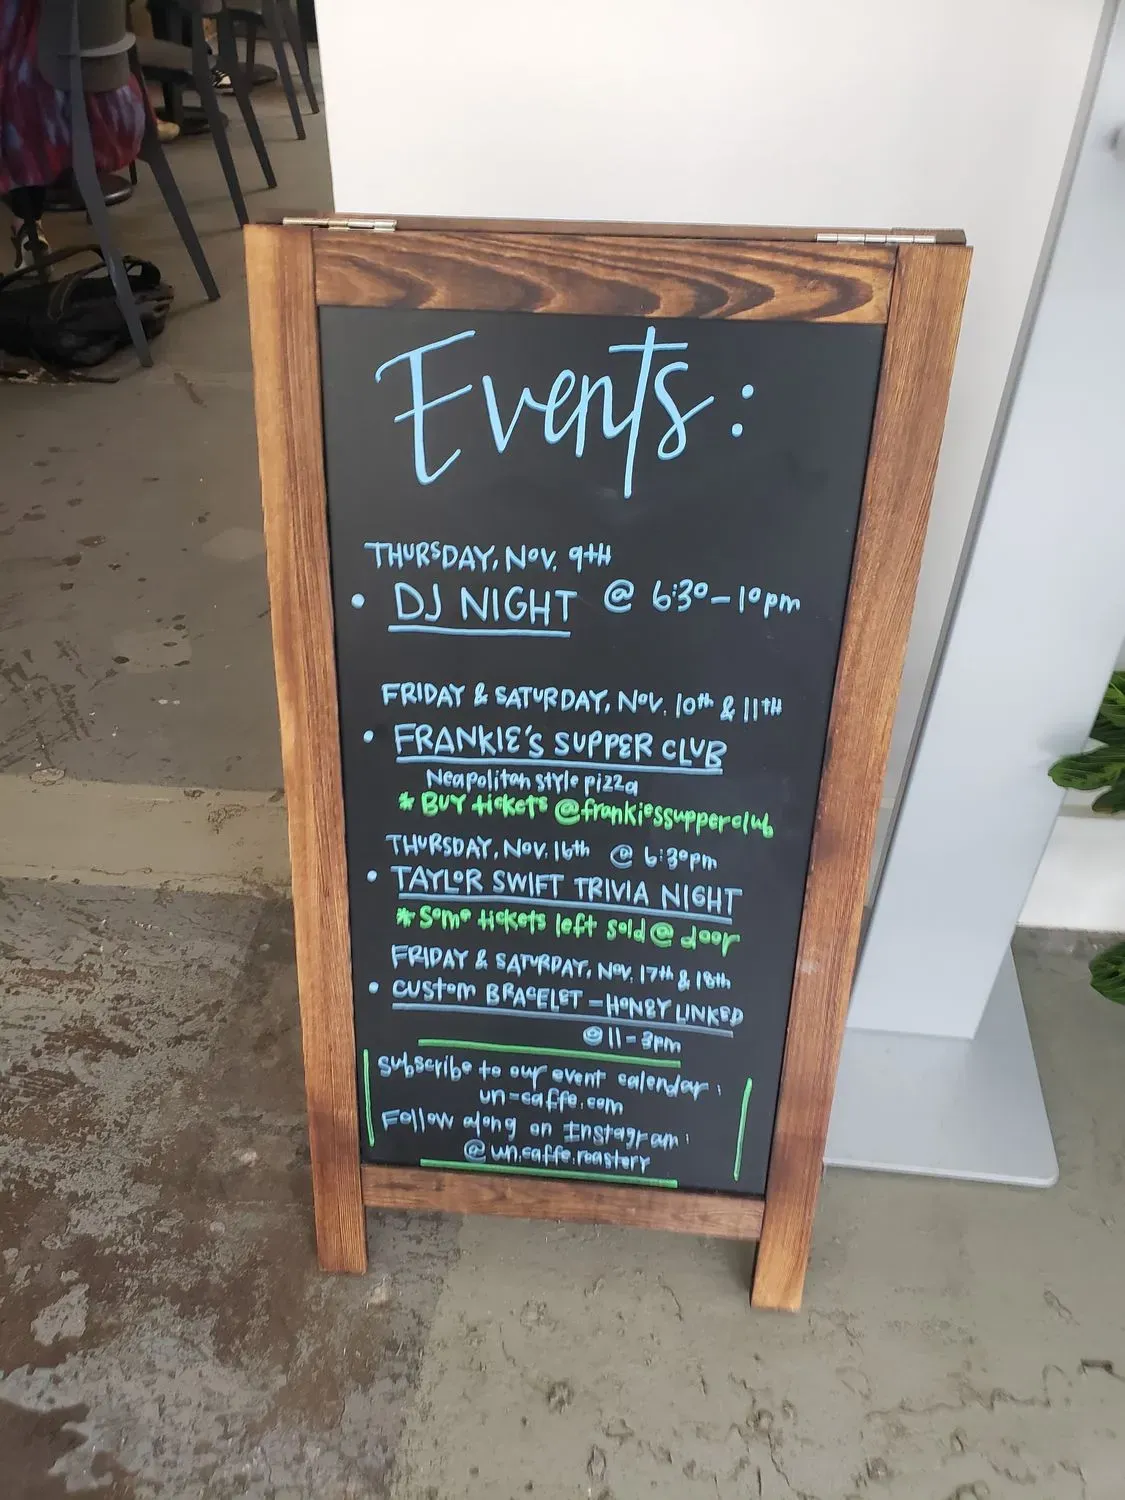 Events:
THURSDAY, NOV. 9TH
• DJ NIGHT @ 6:30-10pm
FRIDAY & SATURDAY, NOV. 10th & 11TH
• FRANKIE'S SUPPER CLUB
Neapolitan style pizza
* BUY tickets @frankiessupperclub
THURSDAY, NOV. 16th @ 6:30pm
• TAYLOR SWIFT TRIVIA NIGHT
* Some tickets left sold @ door
FRIDAY & SATURDAY, NOV. 17th & 18th
• CUSTOM BRACELET - HONEY LINKED
@ 11-3pm
Subscribe to our event calendar:
un-caffe.com
Follow along on Instagram:
@un.caffe.roastery